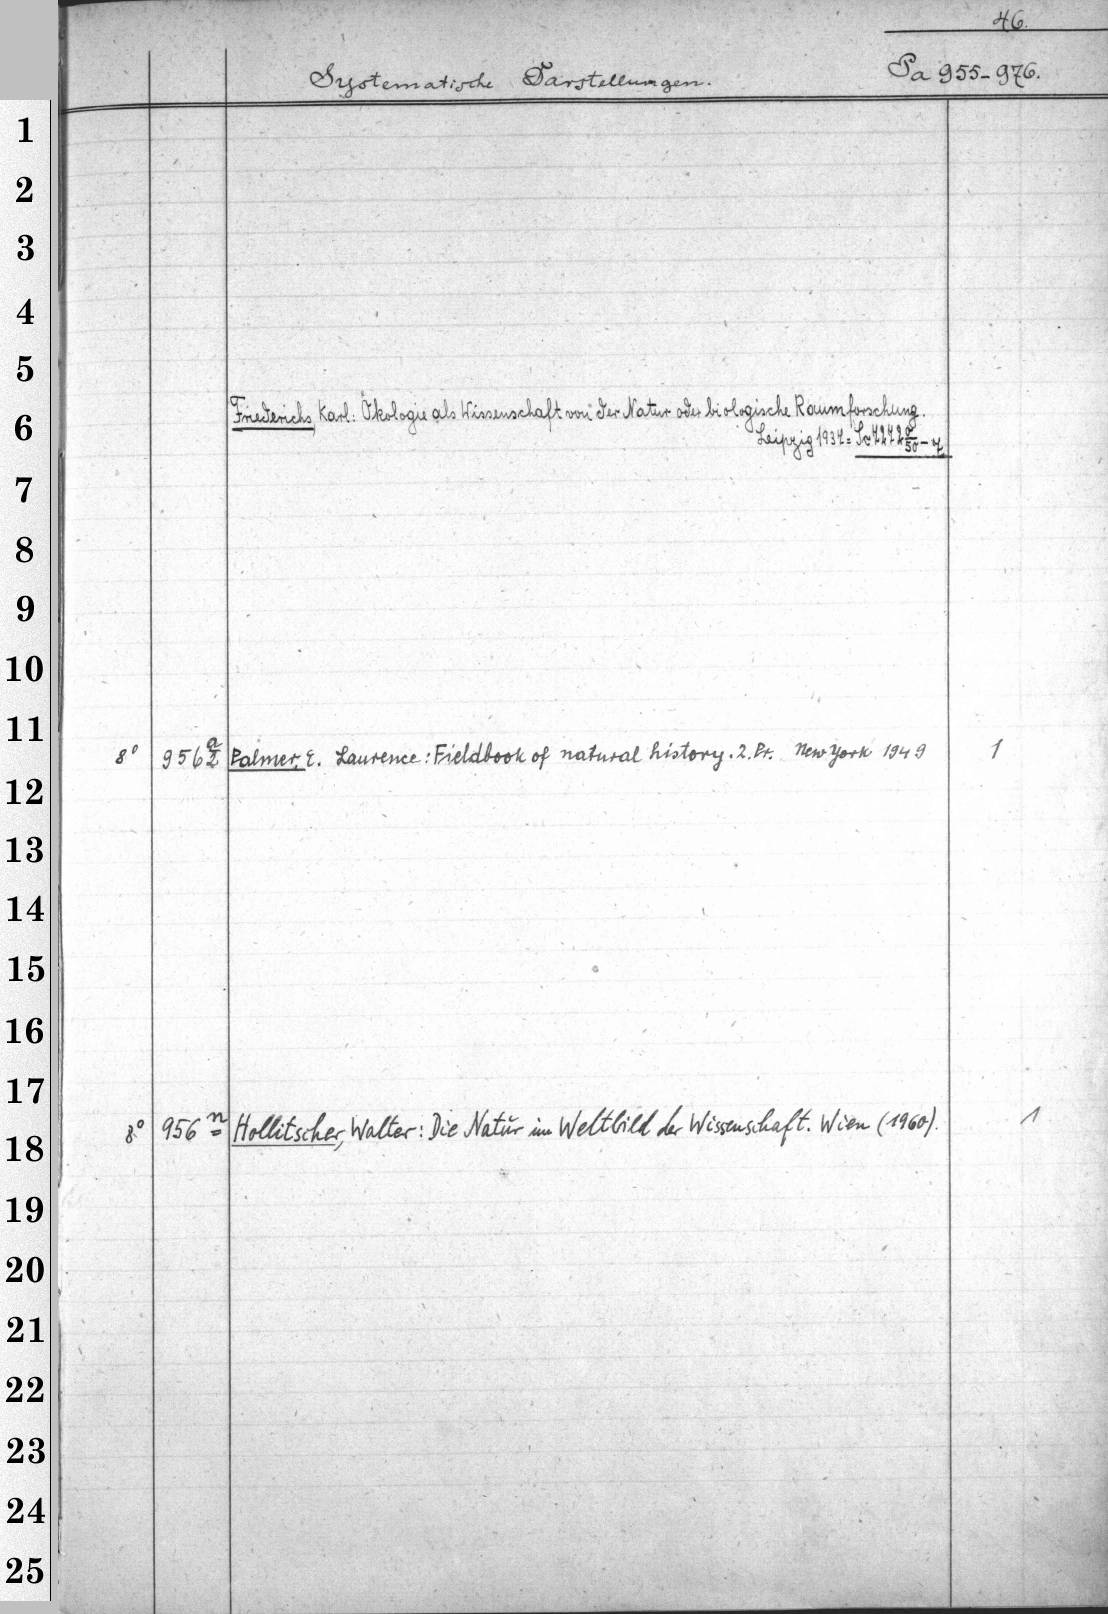 46.
Systematische Darstellungen. Pa 955-976.
1
2
3
4
5
6
Friederichs, Karl: Ökologie als Wissenschaft von der Natur oder biologische Raumforschung.
Leipzig 1937 =
7
8
9
10
11
8° 956 a/2 Palmer, E. Laurence: Fieldbook of natural history. 2. Pr. New York 1949 1
12
13
14
15
16
17
8° 956 n Hollitscher, Walter: Die Natur im Weltbild der Wissenschaft. Wien (1960). 1
18
19
20
21
22
23
24
25